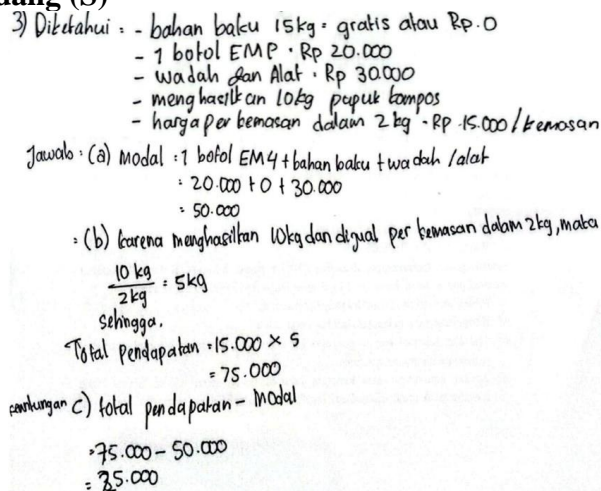 dang (S)
3) Diketahui : - bahan baku 15kg = gratis atau Rp.0
- 1 botol EMP . Rp 20.000
- wadah dan Alat . Rp 30.000
- menghasilkan 10kg pupuk kompos
- harga per kemasan dalam 2 kg - RP.15.000 / kemasan
Jawab : (a) Modal : 1 botol EM4 + bahan baku + wadah / alat
: 20.000 + 0 + 30.000
: 50.000
: (b) karena menghasilkan 10kg dan dijual per kemasan dalam 2kg, maka
10 kg / 2kg : 5kg
Sehingga,
Total Pendapatan = 15.000 × 5
= 75.000
keuntungan c) total pendapatan - Modal
= 75.000 - 50.000
= 25.000